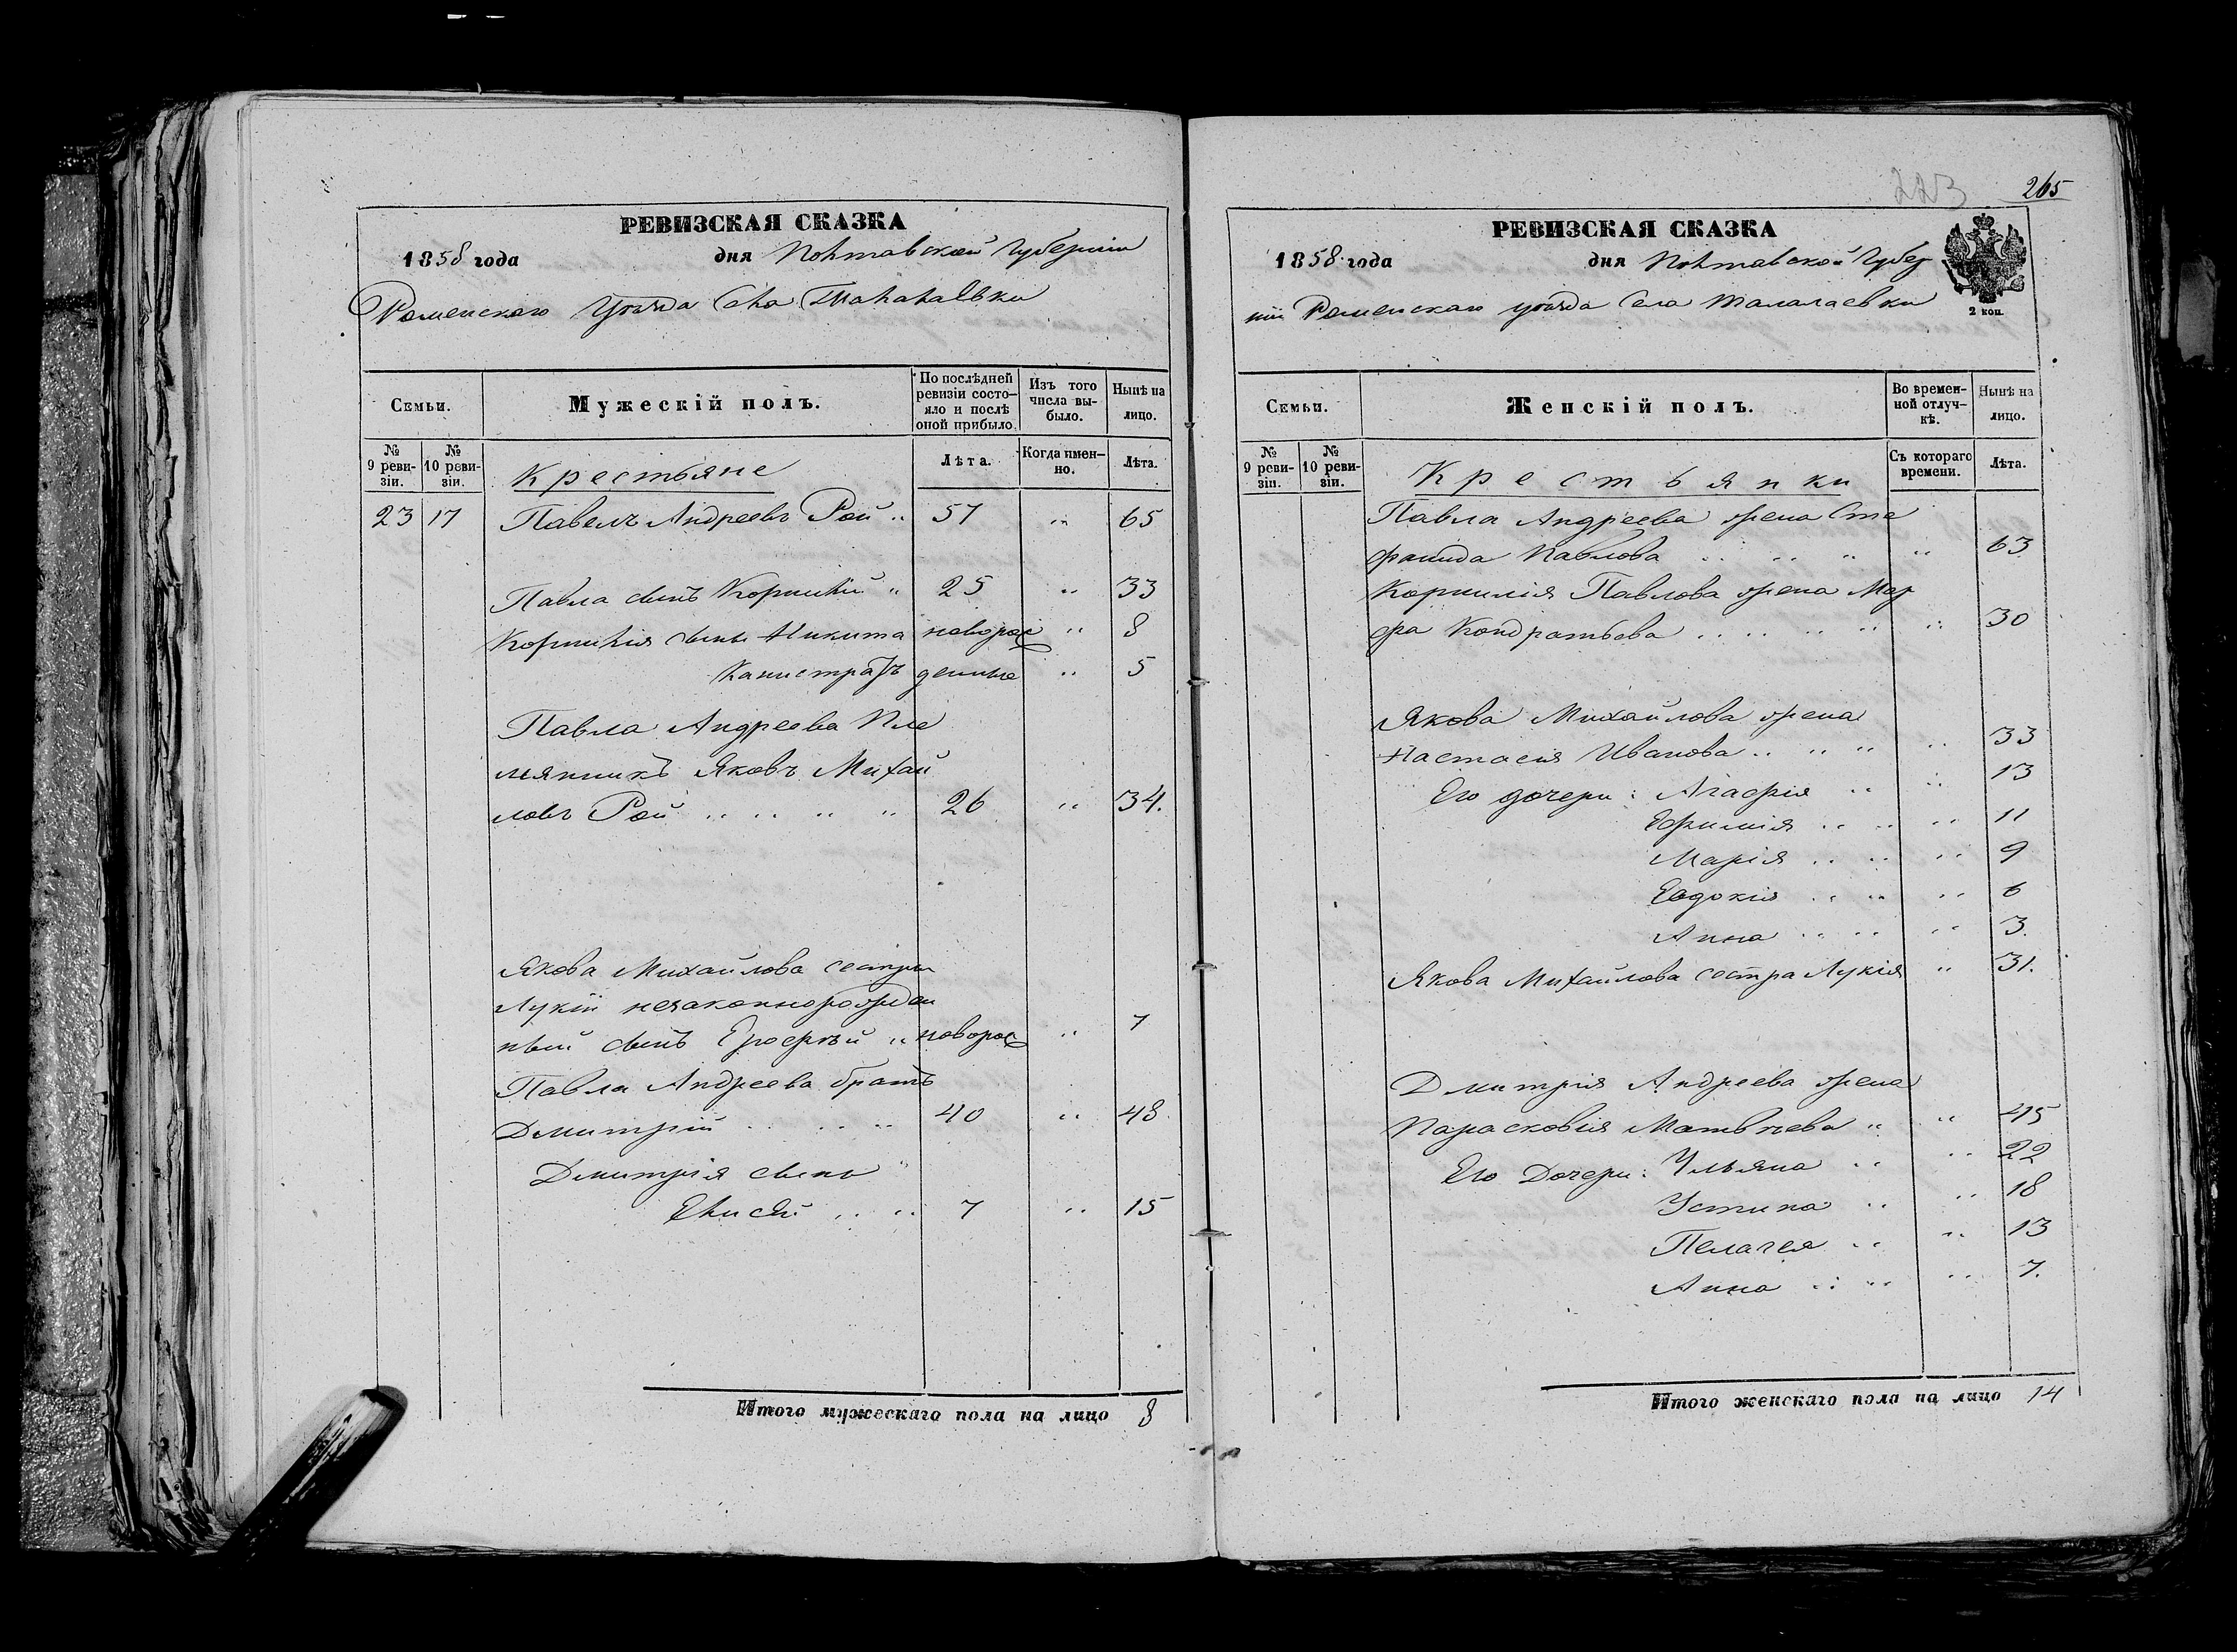 РЕВИЗСКАЯ СКАЗКА
1858 года дня Полтавской Губерніи
Роменскаго Уѣзда Села Талалаевки
Семьи.
Мужескій полъ.
По послѣдней ревизіи состо-
яло и послѣ
оной прибыло.
Изъ того
числа вы-
было.
Нынѣ на
лицо.
№
9 реви-
зіи.
№
10 реви-
зіи.
Крестьяне
Лѣта.
Когда имен-
но.
Лѣта.
23 17 Павелъ Андреевъ Рой „ 57 „ 65
Павла сынъ Корнилій „ 25 „ 33
Корнилія сыны Никита новорож „ 8
Калистратъ денные „ 5
Павла Андреева Пле
мянникъ Яковъ Михай
ловъ Рой „ „ „ „ 26 „ 34.
Якова Михайлова сестры
Лукіи незаконнорожден
ный сынъ Ерофѣй „ новорож „ 7
Павла Андреева братъ
Дмитрій „ „ „ 40 „ 48.
Дмитрія сынъ
Елисѣй „ „ 7 „ 15
Итого мужескаго пола на лицо 8
223
265
РЕВИЗСКАЯ СКАЗКА
1858 года дня Полтавской Губер
ніи Роменскаго уѣзда Села Талалаевки
2 коп.
Семьи.
Женскій полъ.
Во времен-
ной отлуч-
кѣ.
Нынѣ на
лицо.
№
9 реви-
зіи.
№
10 реви-
зіи.
Крестьянки
Съ котораго
времени.
Лѣта.
Павла Андреева жена Сте
фанида Павлова „ „ „ „ 63
Корнилія Павлова жена Мар
фа Кондратьева „ „ „ „ „ 30
Якова Михайлова жена
Настасія Иванова „ „ „ „ 33
Его дочери: Агафія „ „ 13
Ефимія „ „ „ 11
Марія „ „ „ 9
Евдокія „ „ „ 6
Анна „ „ „ 3.
Якова Михайлова сестра Лукія „ 31.
Дмитрія Андреева жена
Парасковія Матвѣева „ „ 45
Его Дочери: Ульяна „ „ 22
Устина „ „ 18
Пелагея „ „ 13
Анна „ „ „ 7.
Итого женскаго пола на лицо 14